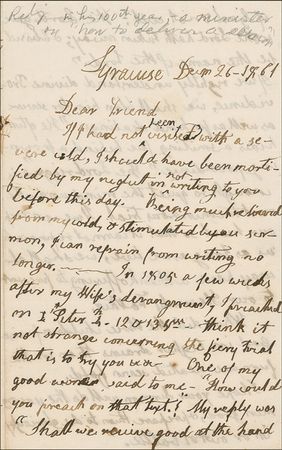 in his 100th year - a minister
on "how to deliver a
Syracuse Decm 26 - 1861
Dear Friend
If I had not been visited with a se-
vere cold, I should have been morti-
fied by my neglect in not writing to you
before this day. Being much restored
from my cold, & stimulated by a ser-
mon, I can refrain from writing no
longer. — In 1805 a few weeks
after my Wife's derangement, I preached
on 1 Peter 4. 12 & 13 — think it
not strange concerning the fiery trial
that is to try you — One of my
good women said to me - "How could
you preach on that text!" My reply was
"Shall we receive good at the hand